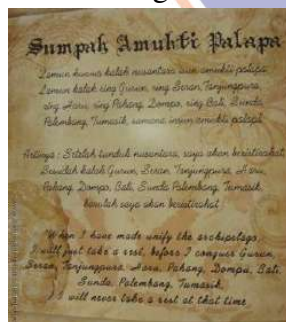 Sumpah Amukti Palapa
Lamun huwus kalah nusantara isun amukti palapa
Lamun kalah ring Gurun, ring Seran, Tanjungpura,
ring Haru, ring Pahang, Dompo, ring Bali, Sunda,
Palembang, Tumasik, samana isun amukti palapa
Artinya : Setelah tunduk nusantara, saya akan beristirahat
Sesudah kalah Gurun, Seran, Tanjungpura, Haru,
Pahang, Dompo, Bali, Sunda Palembang, Tumasik,
barulah saya akan beristirahat
"When I have made unify the archipelago,
I will just take a rest, before I conquer Gurun,
Seran, Tanjungpura, Haru, Pahang, Dompu, Bali,
Sunda, Palembang, Tumasik,
I will never take a rest at that time